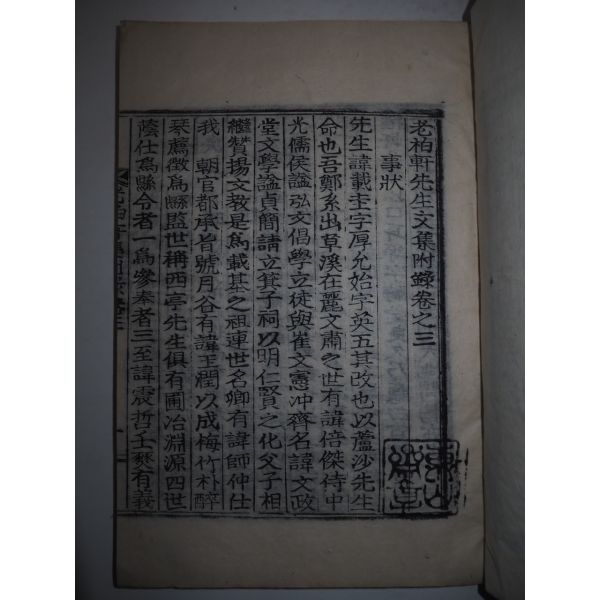 老柏軒先生文集附錄卷之三
事狀
先生諱載圭字厚允始字英五其改也以蘆沙先生
命也吾鄭系出草溪在麗文肅之世有諱倍傑侍中
光儒侯諡弘文倡學立徒與崔文憲冲齊名諱文政
堂文學諡貞簡請立箕子祠以明仁賢之化父子相
繼贊揚文敎是爲載基之祖連世名卿有諱師仲仕
我 朝官都承旨號月谷有諱玉潤以成梅竹朴醉
琴薦徵爲縣監世稱西亭先生俱有圃冶淵源四世
蔭仕爲縣令者一爲參奉者三至諱震哲壬燹有義